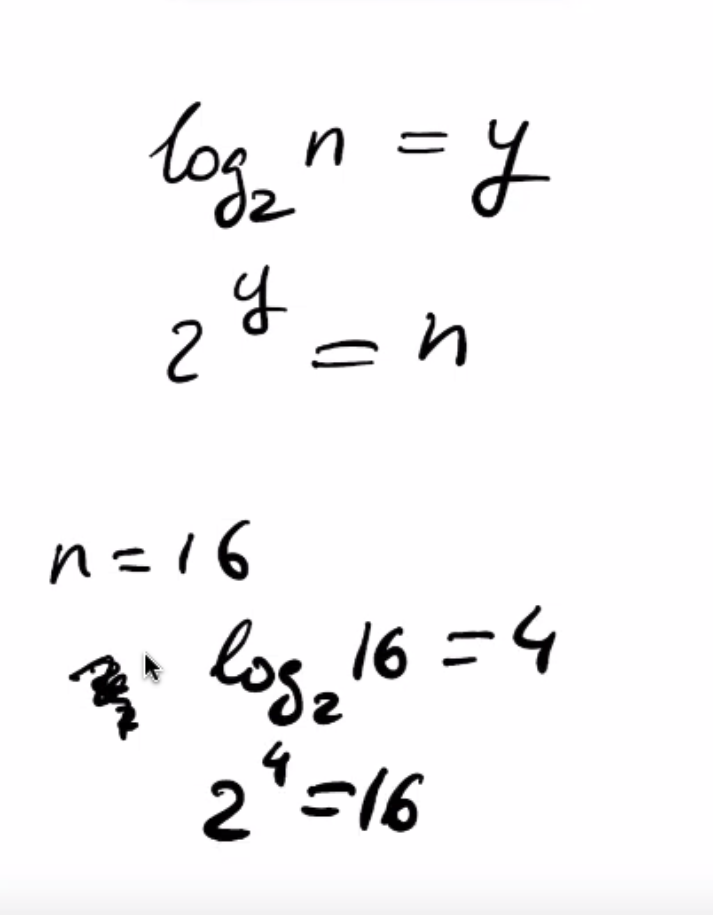 log₂ n = y
2^y = n
n = 16
log₂ 16 = 4
2^4 = 16